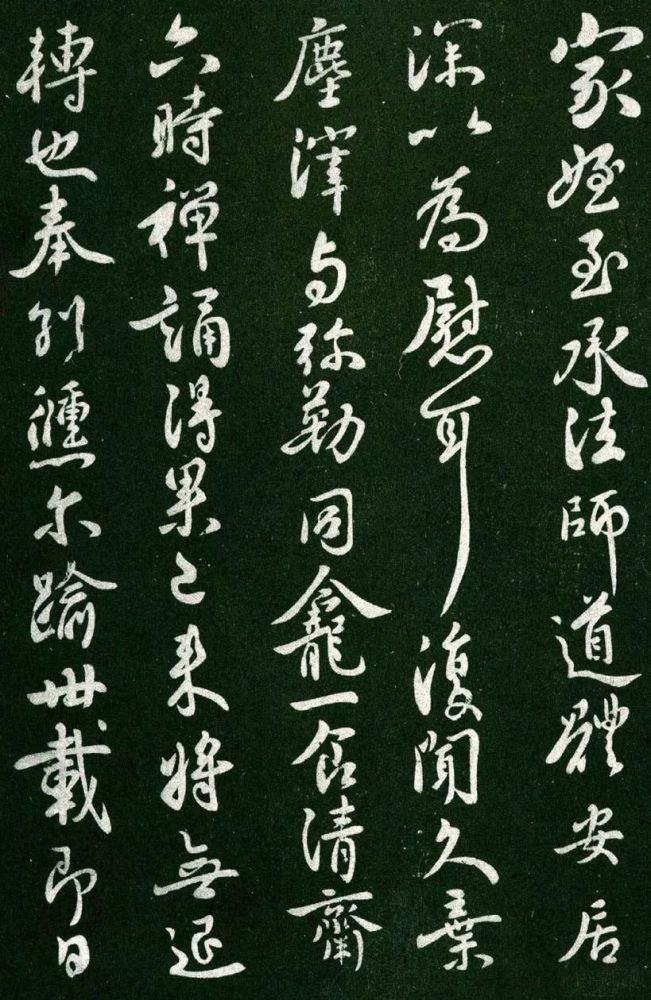 家姪至承法師道體安居
深以爲慰耳復聞久棄
塵滓与彌勒同龕一食清齋
六時禪誦得果已来將無退
轉也奉別儵尓踰卌載即日